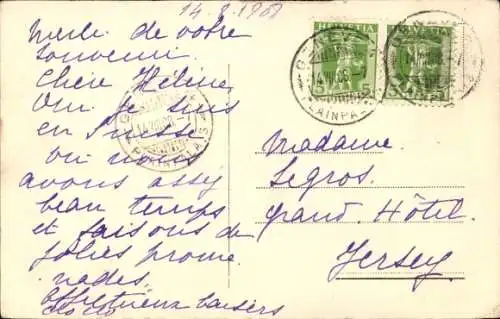 14.8.1908
Merci de votre
souvenir
Chère Hélène
Oui je suis
en Suisse
où nous
avons assy
beau temps
et faisons de
jolies prome
nades.
affectueux baisers
HELVETIA
HELVETIA
5
5
GENÈVE
PLAINPALAIS
Madame
Legros
Grand Hôtel
Jersey